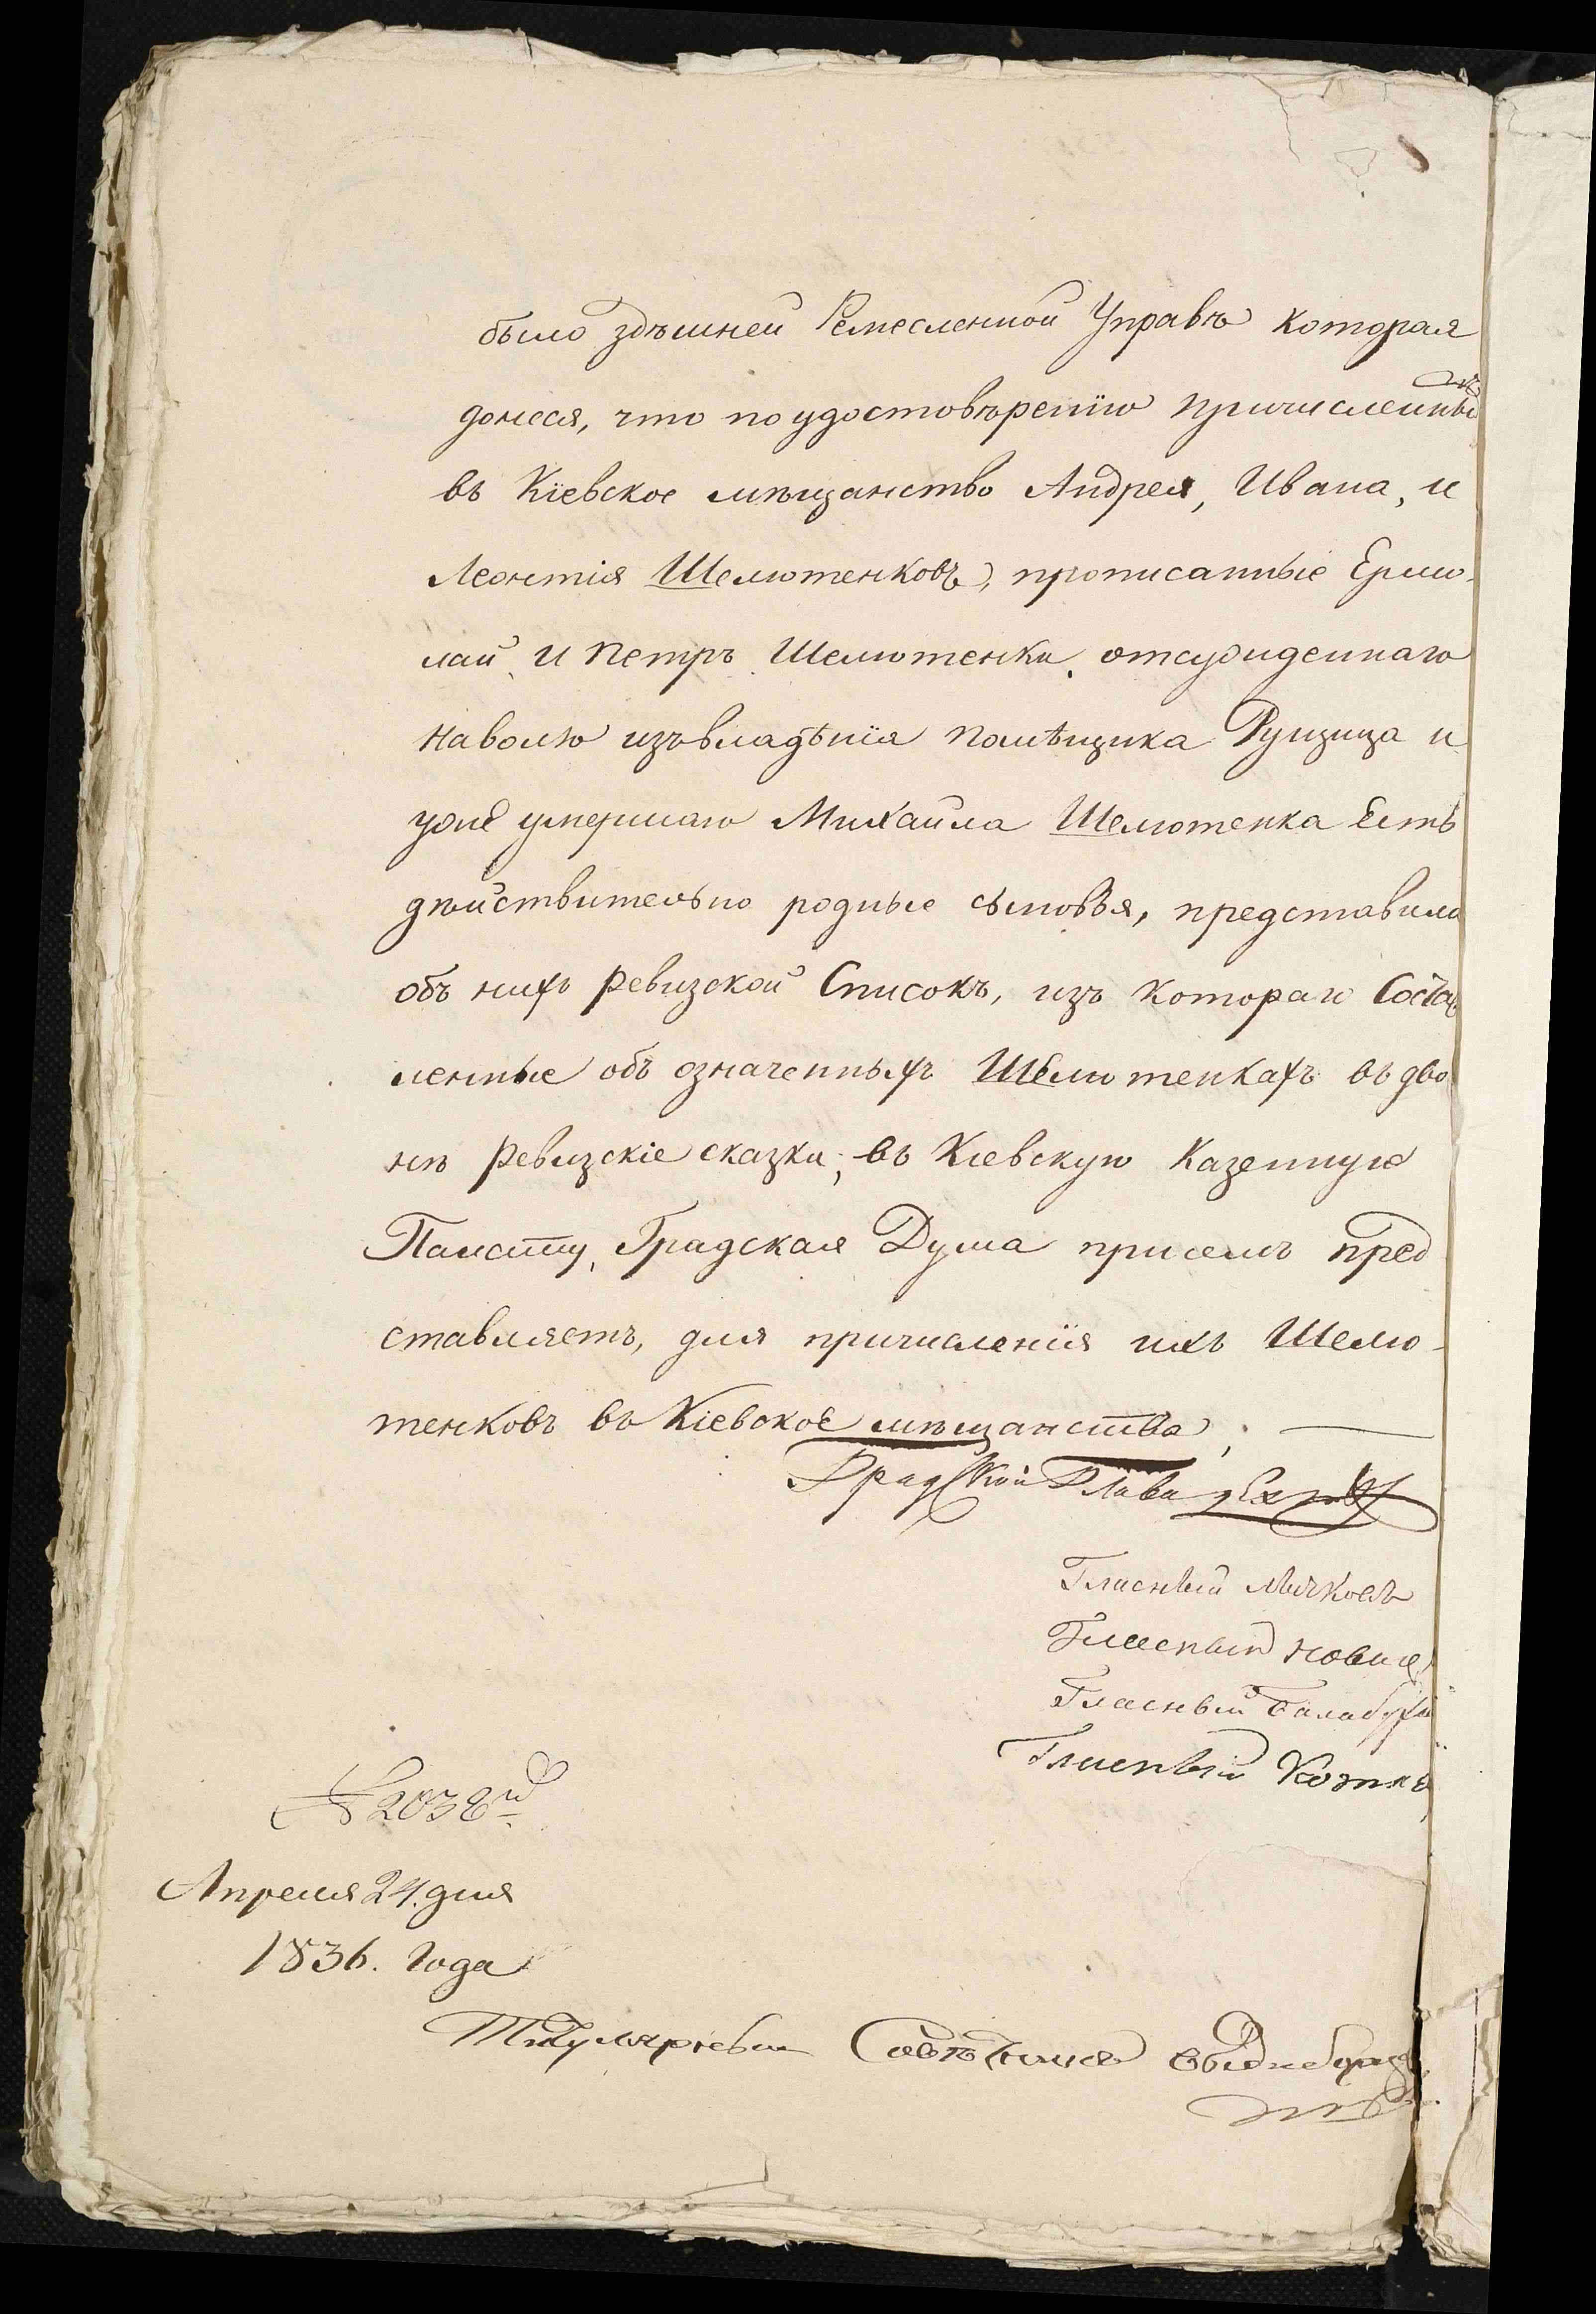 было здѣшней Ремесленной Управѣ которая
донеся, что по удостовѣренію причисленных
въ Кіевское мѣщанство Андрея, Ивана, и
Леонтія Шелютенковъ, прописанные Ермо-
лай, и Петръ Шелютенки, отсужденнаго
на волю изъ владѣнія помѣщика Рущица и
уже умершаго Михаила Шелютенка Есть
дѣйствительно родные сыновья, представила
объ нихъ ревизской Списокъ, изъ котораго Состав
ленные объ означенныхъ Шелютенкахъ въ дво
нѣ ревизскіе сказки, въ Кіевскую Казенную
Палату, Градская Дума присемъ пред
ставляетъ, для причисленія ихъ Шелю-
тенковъ въ Кіевское мѣщанство,
Градской Глава
Гласный
Гласный
Гласный Балабуха
Гласный
№ 2038й
Апреля 24. дня
1836. Года
Титулярный Совѣтникъ